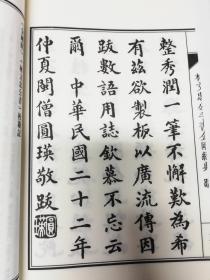 整秀潤一筆不懈歎為希
有茲欲製板以廣流傳因
跋數語用誌欽慕不忘云
爾　中華民國二十二年
仲夏閩僧圓瑛敬跋
圓瑛